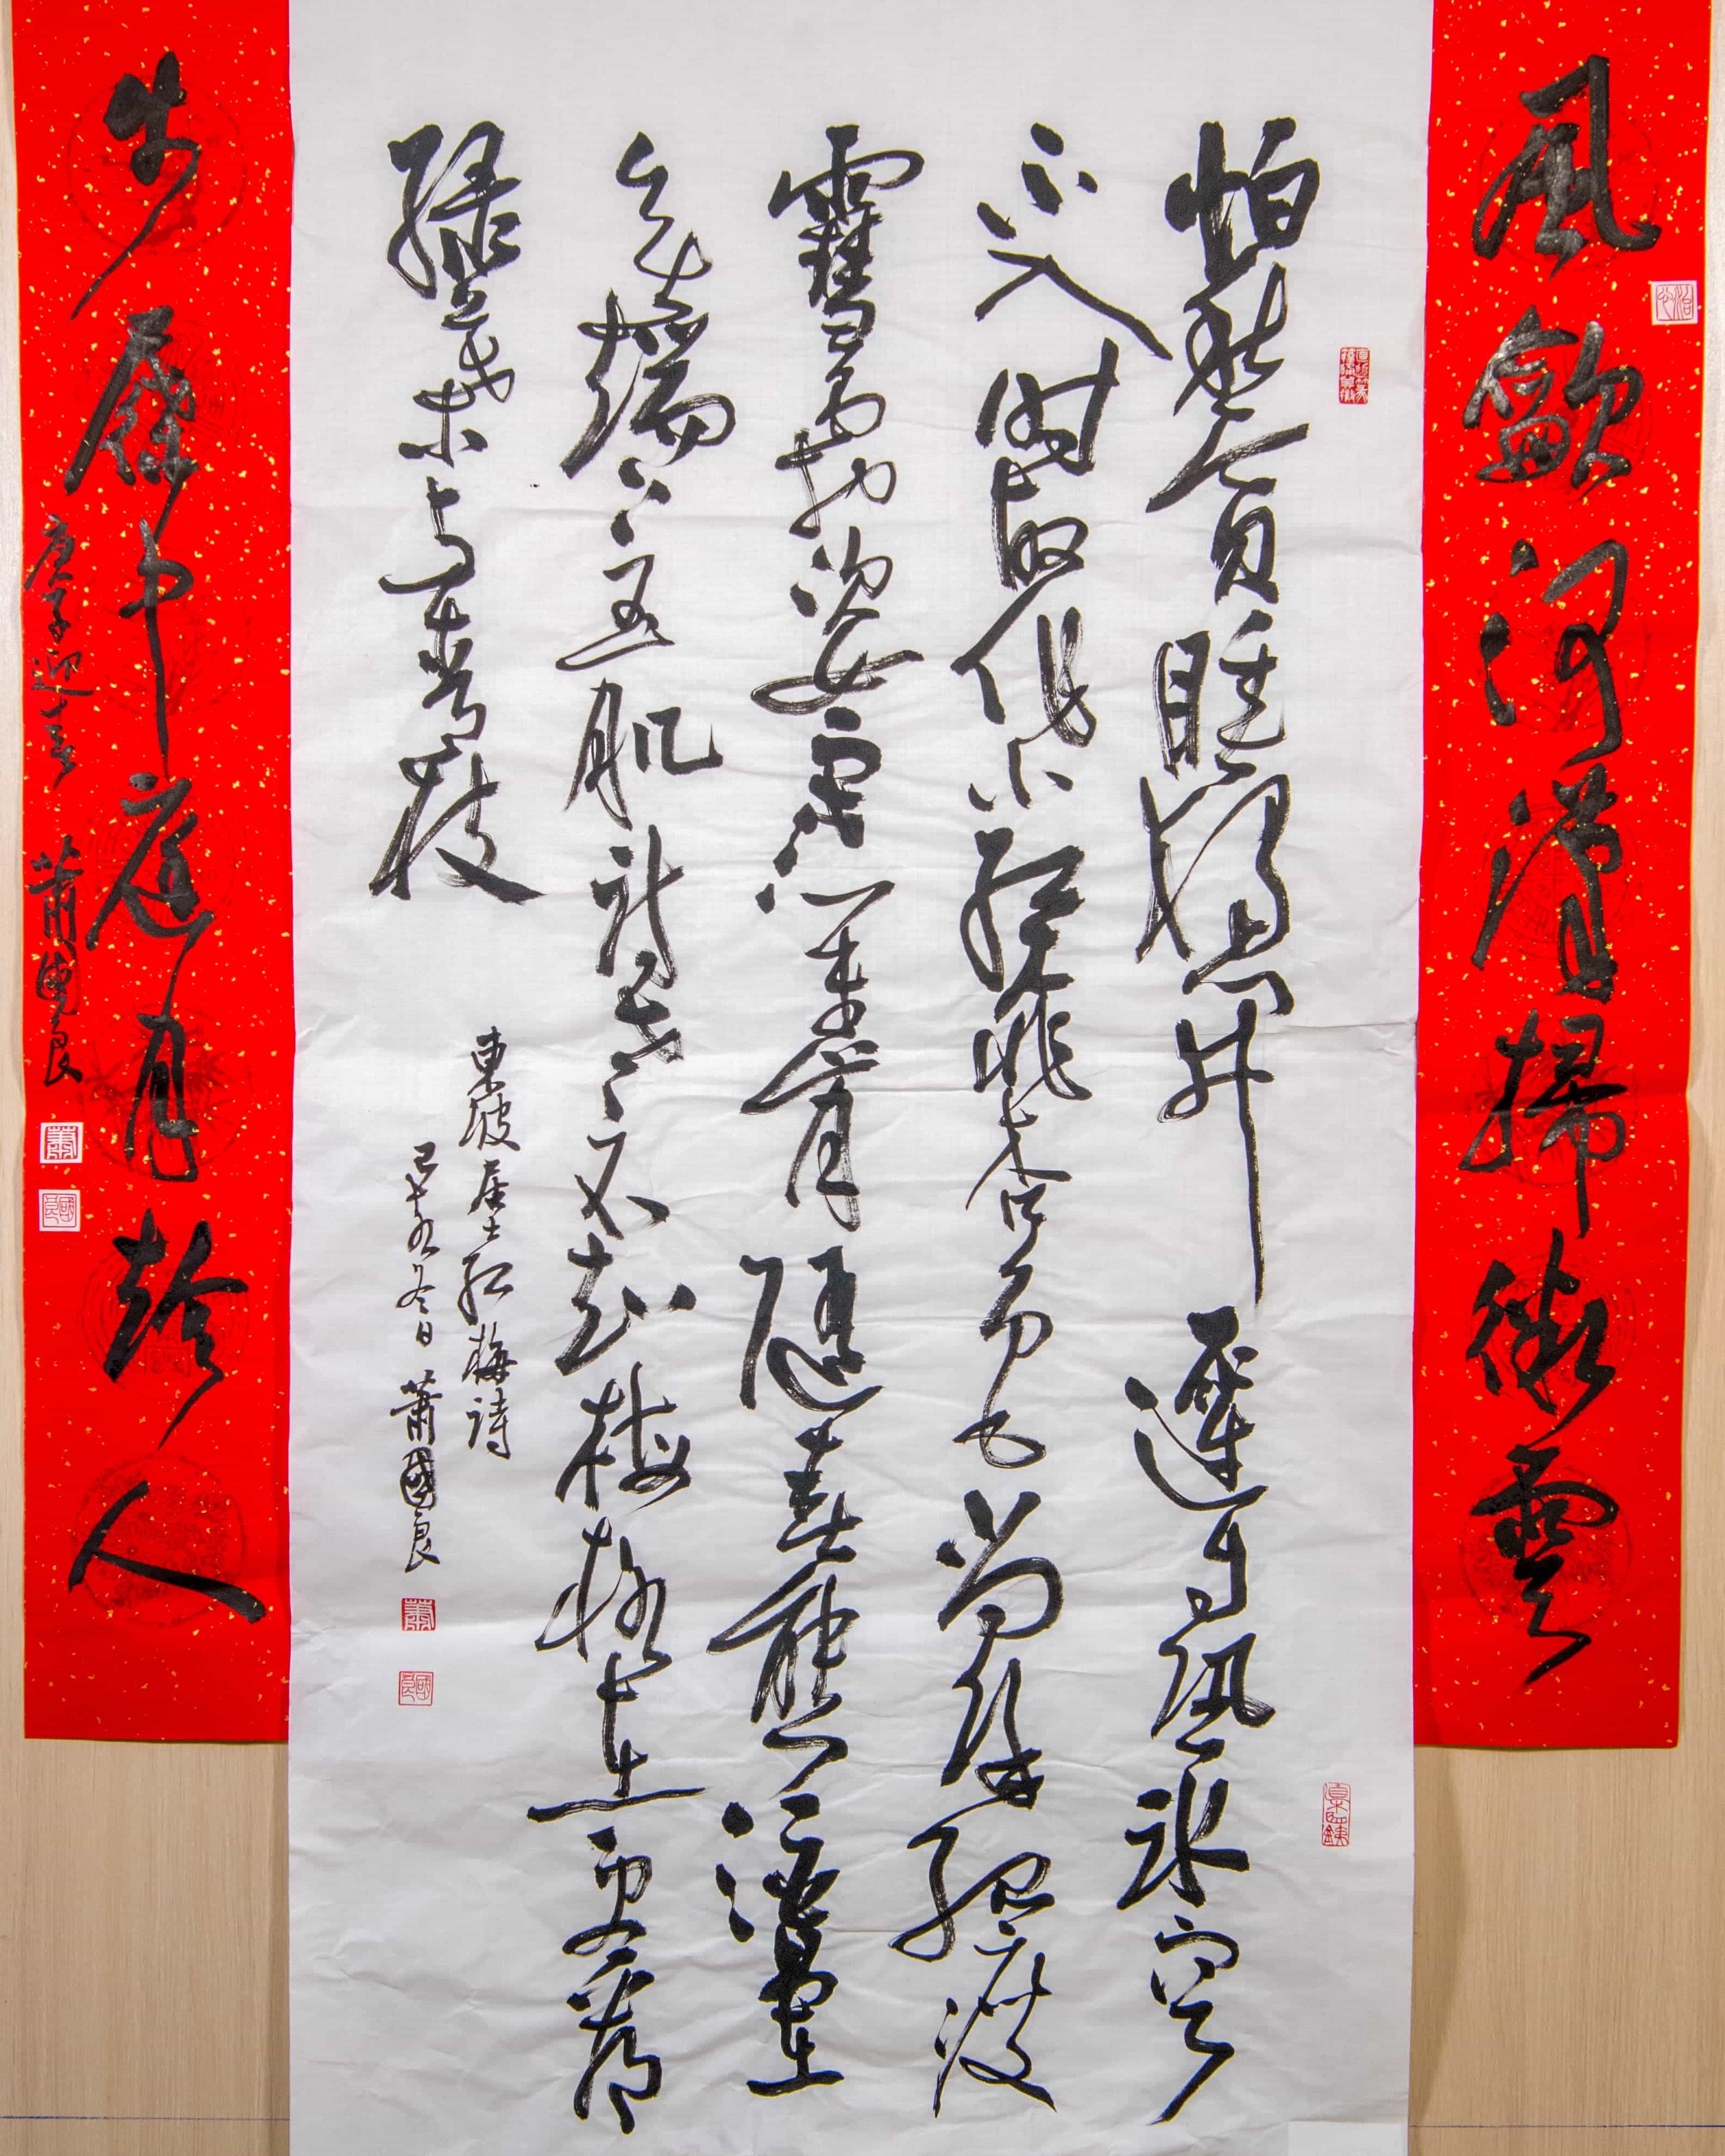 風歛河漢掃微雲
怕愁貪睡獨開遲自恐冰容
不入時故作小紅桃杏色尚餘孤瘦
雪霜姿寒心未肯隨春態酒暈
無端上玉肌詩老不知梅格在更看
綠葉與青枝
東坡居士紅梅詩
己亥冬日 蕭國良
步屧中庭月趁人
庚子迎春 蕭國良